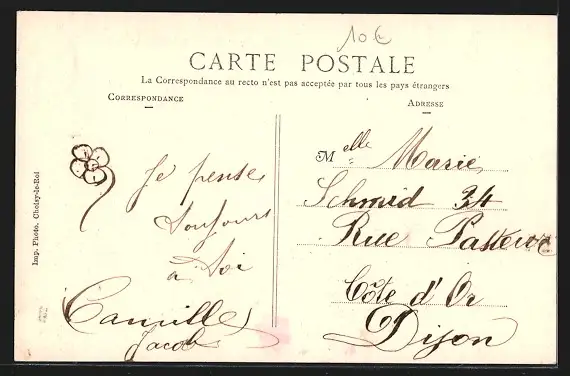 10 €
CARTE POSTALE
La Correspondance au recto n'est pas acceptée par tous les pays étrangers
CORRESPONDANCE
ADRESSE
Je pense
toujours
à toi
Camille
Jacob
Melle Marie
Schmid 34
Rue Pasteur
Côte d'Or
Dijon
Imp. Photo. Choisy-le-Roi